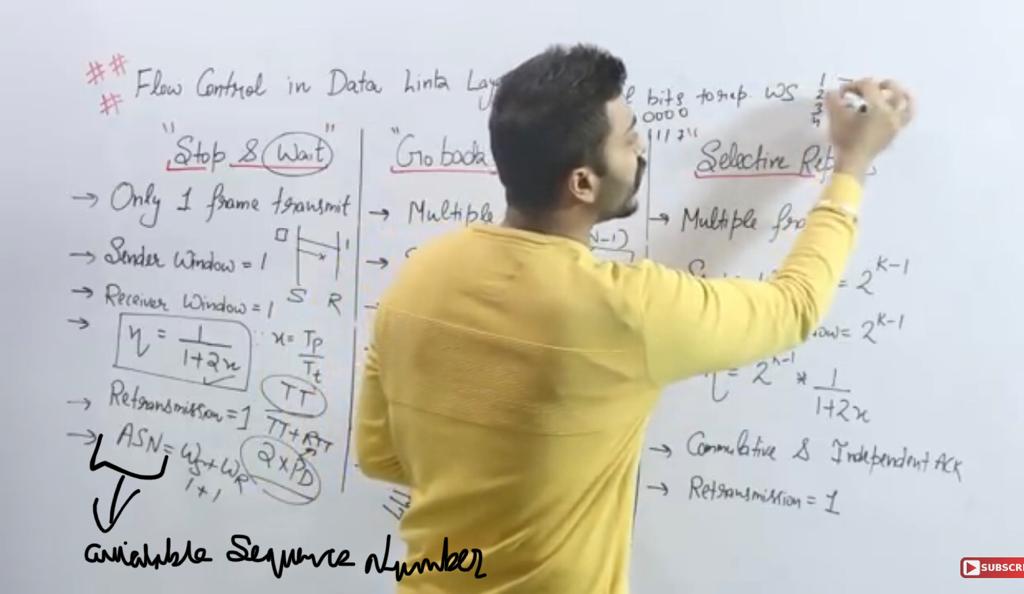 ##
#
Flow Control in Data Link Lay
bits to rep. WS
1
2
3
4
0000
1111
"Stop & Wait"
→ Only 1 frame transmit
→ Sender Window = 1
→ Receiver Window = 1
S R
→ η = 1/1+2x ∵ x = Tp/Tt
→ Retransmission = 1
TT
TT + RTT
2×PD
→ ASN = Ws + WR
1 + 1
avialable Sequence Number
"Go back
→ Multiple
N-1)
Selective Rep
→ Multiple fra
= 2^K-1
= 2^K-1
η = 2^K-1 * 1/1+2x
→ Commulative & Independent ACK
→ Retransmission = 1
SUBSCRI